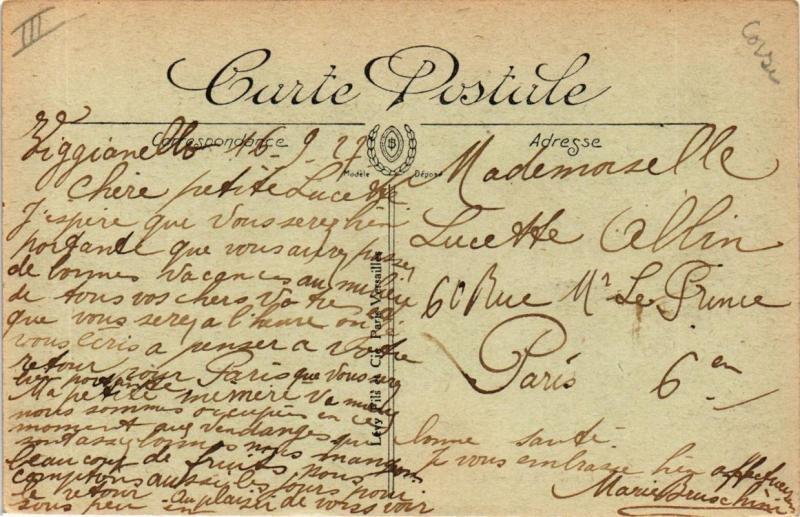 III
Corse
Carte Postale
Correspondance
Adresse
Modèle Déposé
Lévy Fils et Cie, Paris-Versailles
Ziggianello 16-9 27
Chère petite Lucette
J'espère que vous serez bien
portante que vous aurez passez
de bonnes vacances au milieu
de tous vos chers
que vous serez a l'heure
vous écris a penser a votre
retour pour Paris que vous serez
bien portante
Ma petite memère va mieux
nous sommes occupés en ce
moment aux vendanges qui
sont assez bonnes nous mangeons
beaucoup de fruits. nous
comptons aussi les jours pour
le retour au plaisir de vous voir
sous peu
bonne santé
Je vous embrasse bien affectueu
Marie
Mademoiselle
Lucette Allin
60 Rue Mr Le Prince
Paris 6en